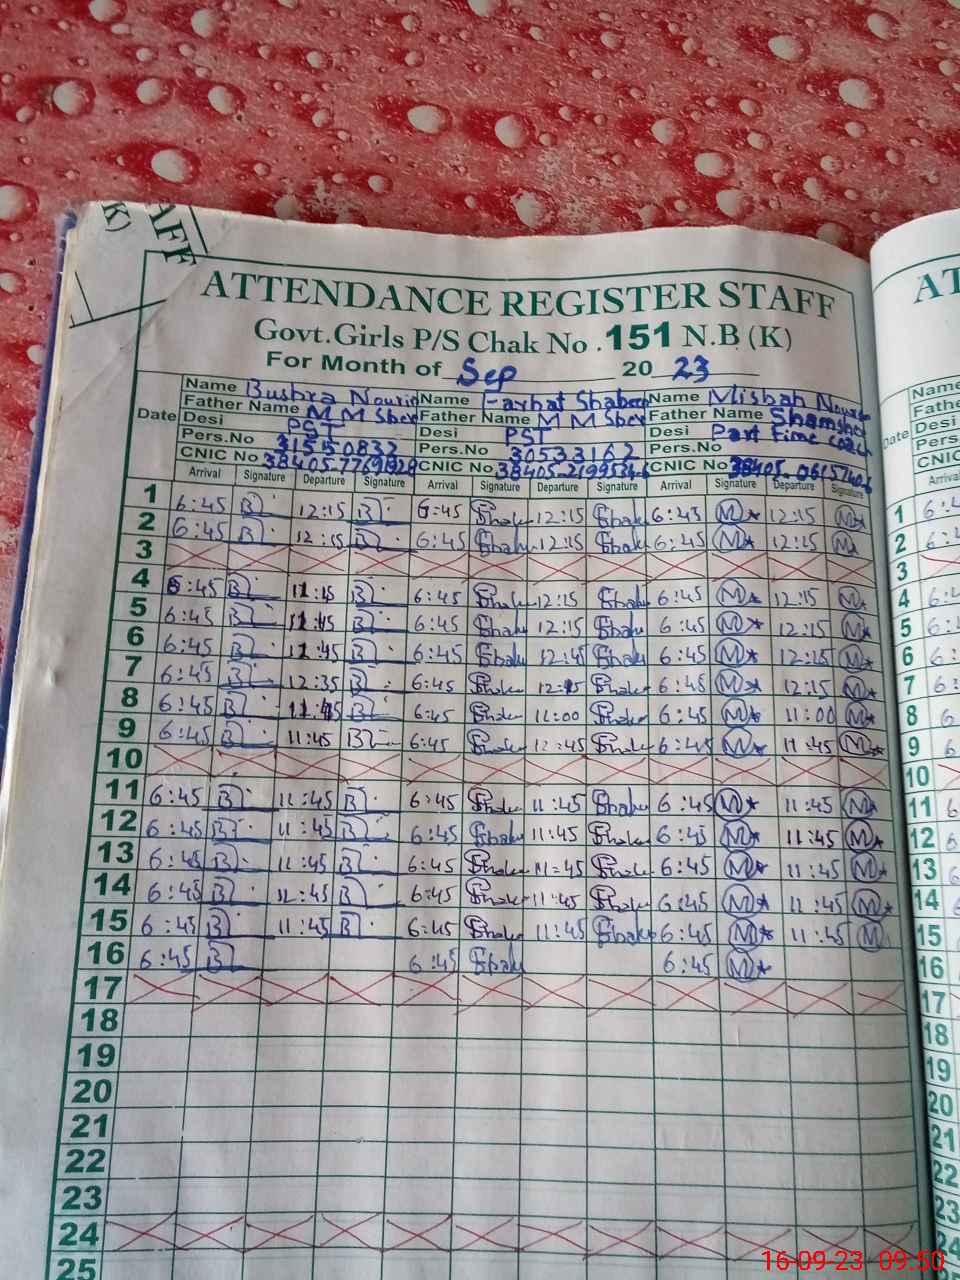 AFF
K)
ATTENDANCE REGISTER STAFF
Govt.Girls P/S Chak No . 151 N.B (K)
For Month of Sep 20 23
Date Name Bushra Name Farhat Shaheen Name Misbah
Father Name M M Sher Father Name M M Sher Father Name
Desi PST Desi PST Desi Part Time coach
Pers.No 31550832 Pers.No 30533162 Pers.No
CNIC No CNIC No CNIC No
Arrival Signature Departure Signature Arrival Signature Departure Signature Arrival Signature Departure Signature
1 6:45 B 12:15 B 6:45 Shah 12:15 Shah 6:45 M 12:15 M
2 6:45 B 12:15 B 6:45 Shah 12:15 Shah 6:45 M 12:15 M
3
4 6:45 B 11:45 B 6:45 Shah 12:15 Shah 6:45 M 12:15 M
5 6:45 B 11:45 B 6:45 Shah 12:15 Shah 6:45 M 12:15 M
6 6:45 B 11:45 B 6:45 Shah 12:45 Shah 6:45 M 12:15 M
7 6:45 B 12:35 B 6:45 Shah 12:15 Shah 6:45 M 12:15 M
8 6:45 B 11:45 B 6:45 Shah 11:00 Shah 6:45 M 11:00 M
9 6:45 B 11:45 B 6:45 Shah 12:45 Shah 6:45 M 11:45 M
10
11 6:45 B 11:45 B 6:45 Shah 11:45 Shah 6:45 M 11:45 M
12 6:45 B 11:45 B 6:45 Shah 11:45 Shah 6:45 M 11:45 M
13 6:45 B 11:45 B 6:45 Shah 11:45 Shah 6:45 M 11:45 M
14 6:45 B 11:45 B 6:45 Shah 11:45 Shah 6:45 M 11:45 M
15 6:45 B 11:45 B 6:45 Shah 11:45 Shah 6:45 M 11:45 M
16 6:45 B 6:45 Shah 6:45 M
17
18
19
20
21
22
23
24
25
AT
Name
Fathe
Date Desi
Pers.
CNIC
Arrival
1
2
3
4
5
6
7
8
9
10
11
12
13
14
15
16
17
18
19
20
21
22
23
24
16-09-23 09:50